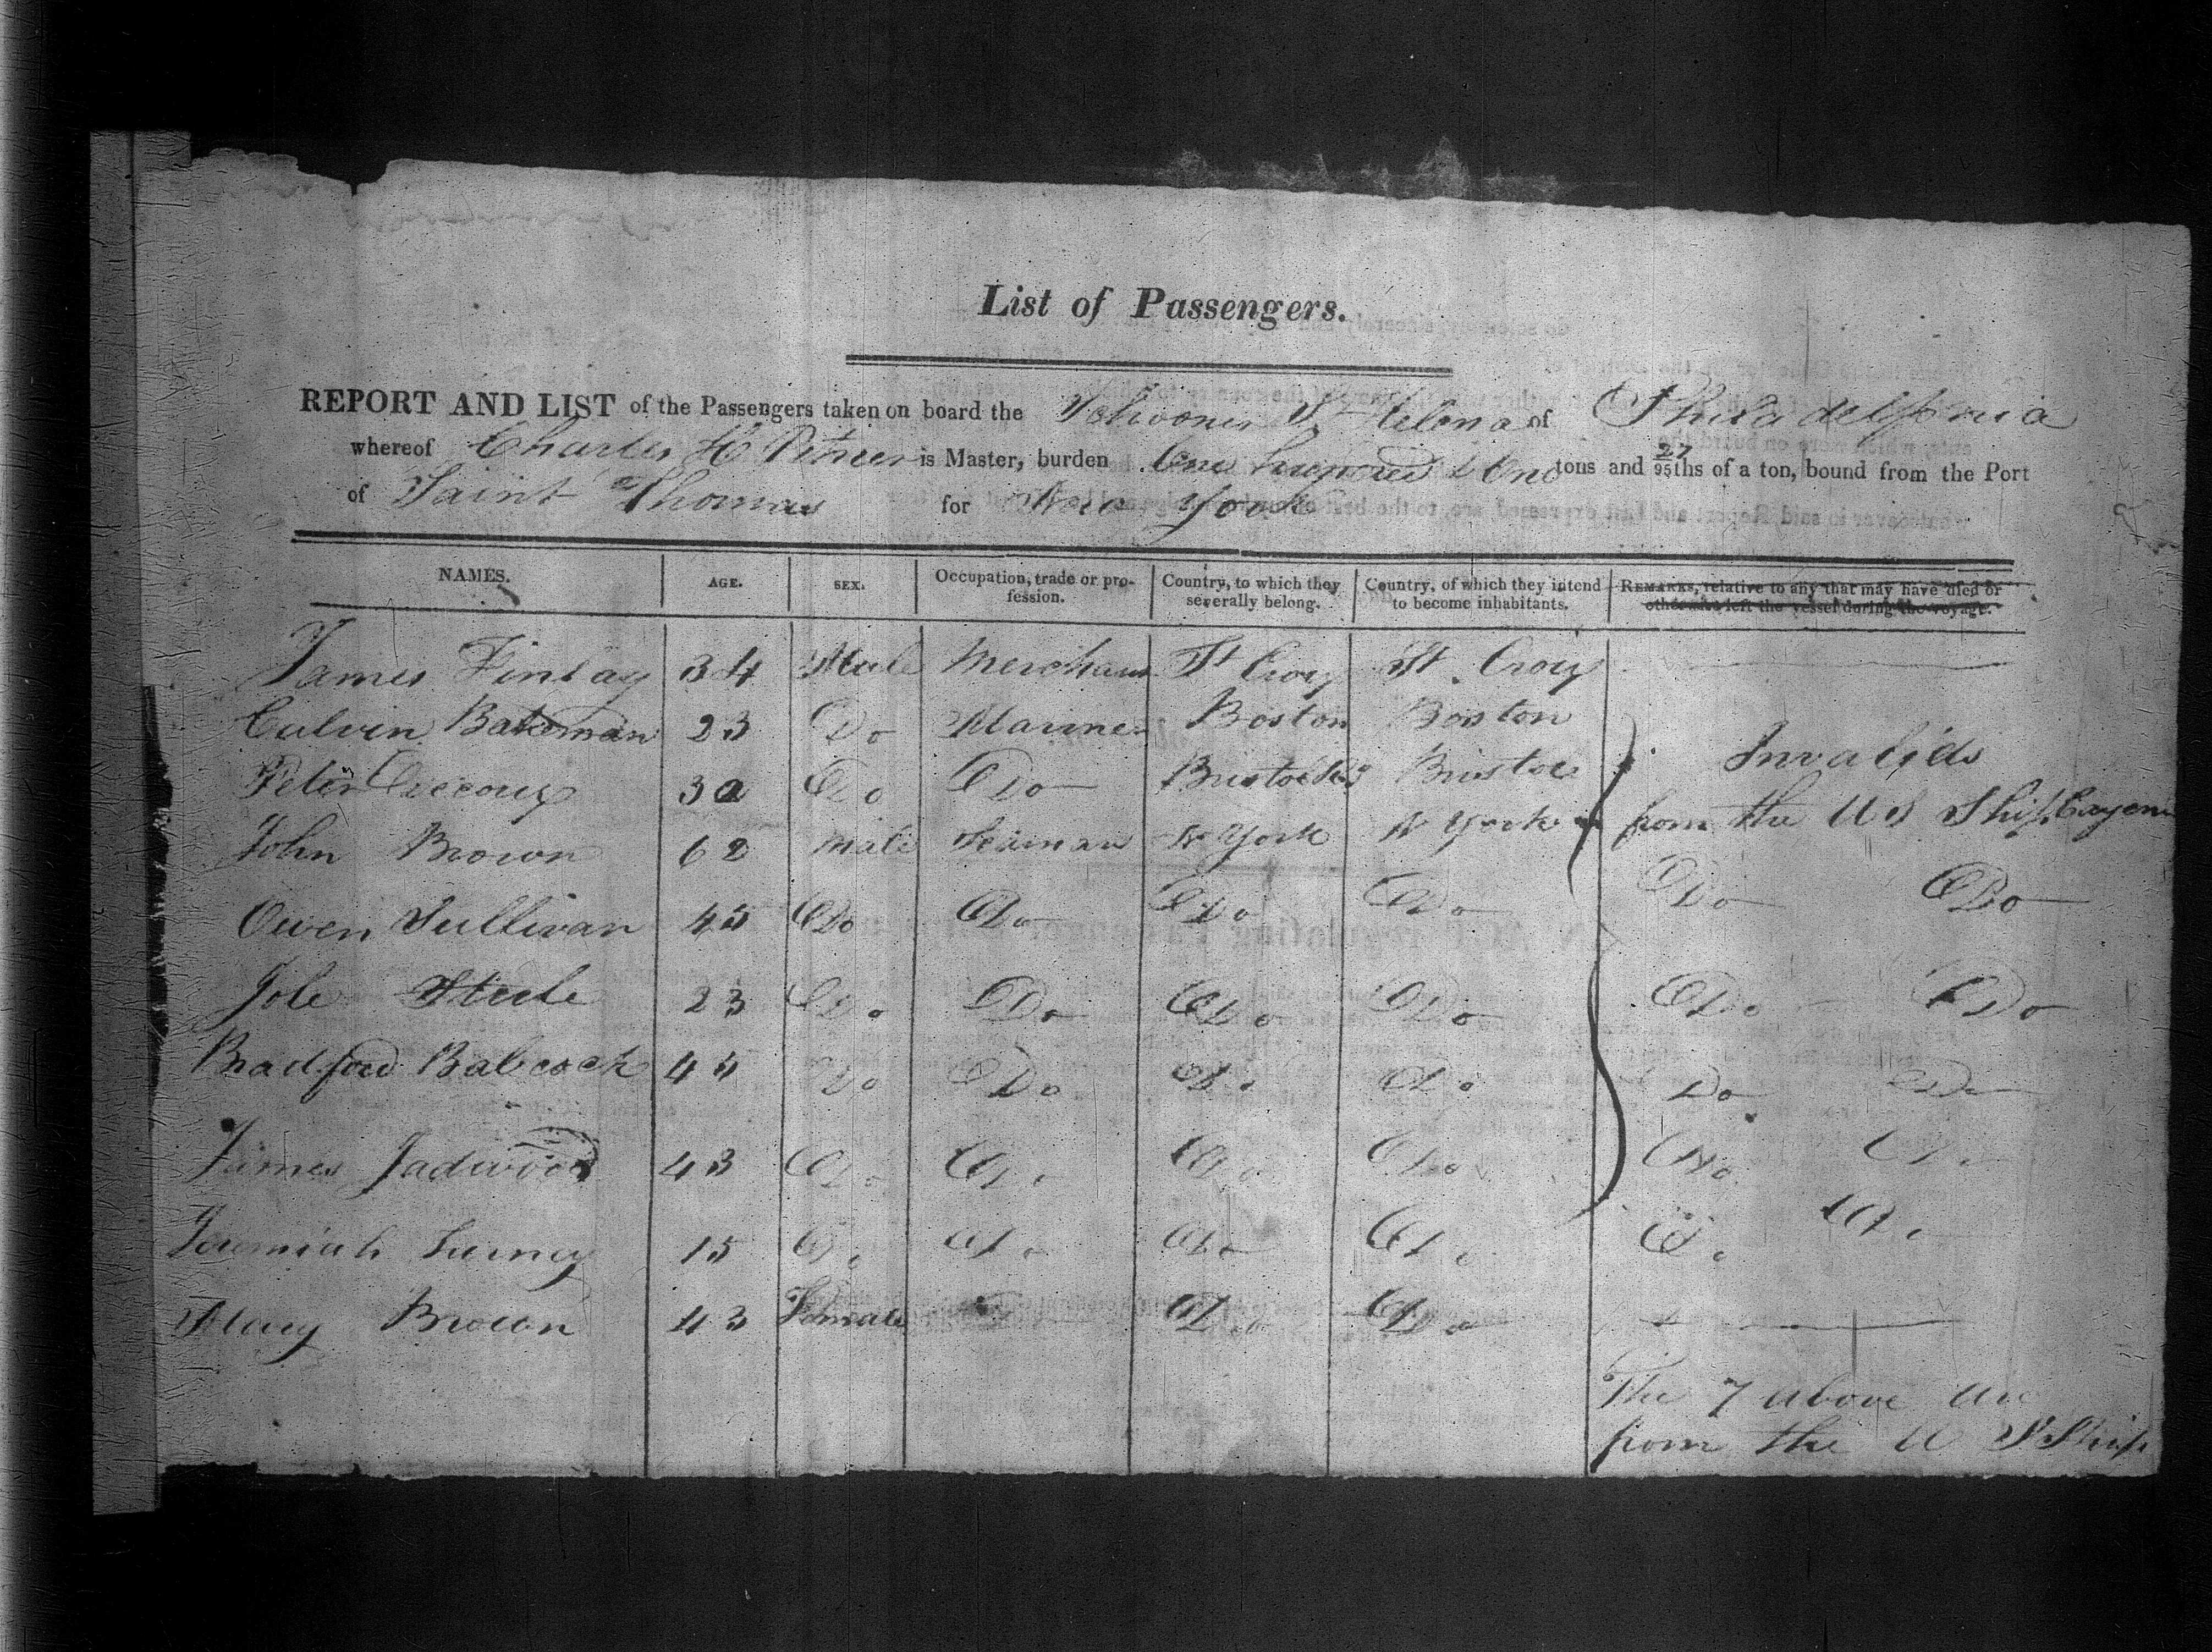 List of Passengers.
REPORT AND LIST of the Passengers taken on board the Schooner St Helena of Philadelphia
whereof Charles H is Master, burden One hundred & One tons and 27/95ths of a ton, bound from the Port
of Saint Thomas for New York
NAMES. AGE. SEX. Occupation, trade or profession. Country, to which they severally belong. Country, of which they intend to become inhabitants. REMARKS, relative to any that may have died or otherwise left the vessel during the voyage.
James Finlay 34 Male Merchant St Croix St. Croix
Calvin Bateman 23 Do Marine Boston Boston
Invalids
Peter 30 Do Do Bristol Bristol
from the US Ship Cayene
John Brown 62 Male Seaman N York N York
Owen Sullivan 45 Do Do Do Do Do Do
Jole Steele 23 Do Do Do Do Do Do
Bradford Babcock 44 Do Do Do Do Do Do
James Jadwood 43 Do Do Do Do Do Do
Jeremiah 15 Do Do Do Do Do Do
Mary Brown 43 Female Do Do
The 7 above are
from the U S Ship